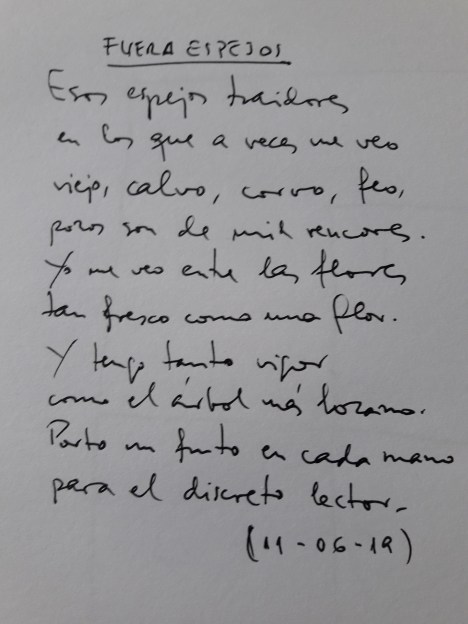 FUERA ESPEJOS
Esos espejos traidores
en los que a veces me veo
viejo, calvo, corvo, feo,
pozos son de mil rencores.
Yo me veo entre las flores
tan fresco como una flor.
Y tengo tanto vigor
como el árbol más lozano.
Porto un fruto en cada mano
para el discreto lector.
(11-06-19)